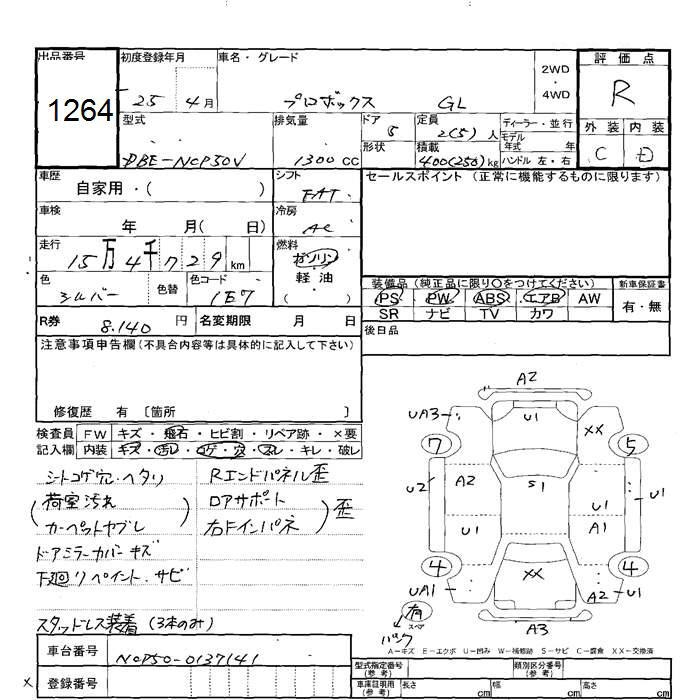 出品番号
1264
初度登録年月
25年 4月
車名・グレード
プロボックス GL
2WD
4WD
評価点
R
型式
DBE-NCP50V
排気量
1300 CC
ドア
5
形状
定員
2(5)人
積載
400(250)kg
ディーラー・並行
モデル年式 年
ハンドル 左・右
外装 内装
C D
車歴
自家用・( )
シフト
FAT
セールスポイント (正常に機能するものに限ります)
車検
年 月( 日)
冷房
AC
走行
15万4千729km
燃料
ガソリン
軽油
( )
色
シルバー
色替
色コード
1E7
装備品 (純正品に限り○をつけてください)
新車保証書
PS PW ABS エアB AW
SR ナビ TV カワ
有・無
R券
8.140円
名変期限 月 日
後日品
注意事項申告欄(不具合内容等は具体的に記入して下さい)
修復歴 有 〔箇所 〕
検査員記入欄
FW キズ・飛石・ヒビ割・リペア跡・×要
内装 キズ・汚レ・コゲ・穴・スレ・キレ・破レ
シートコゲ穴・ヘタリ
荷室汚れ
カーペットヤブレ
ドアミラーカバーキズ
下廻りペイント・サビ
スタッドレス装着(3本のみ)
Rエンドパネル歪
ロアサポート
右Fインパネ
歪
A2
UA3
U1
XX
7
5
U2
A2
S1
U1
U1
U1
A1
4
4
XX
UA1
A2
U1
有
スペア
パンク
A3
A-キズ E-エクボ U-凹み W-補修跡 S-サビ C-腐食 XX-交換済
車台番号
NCP50-0137141
登録番号
×
型式指定番号(参考)
類別区分番号(参考)
車庫証明用(参考)
長さ cm
幅 cm
高さ cm